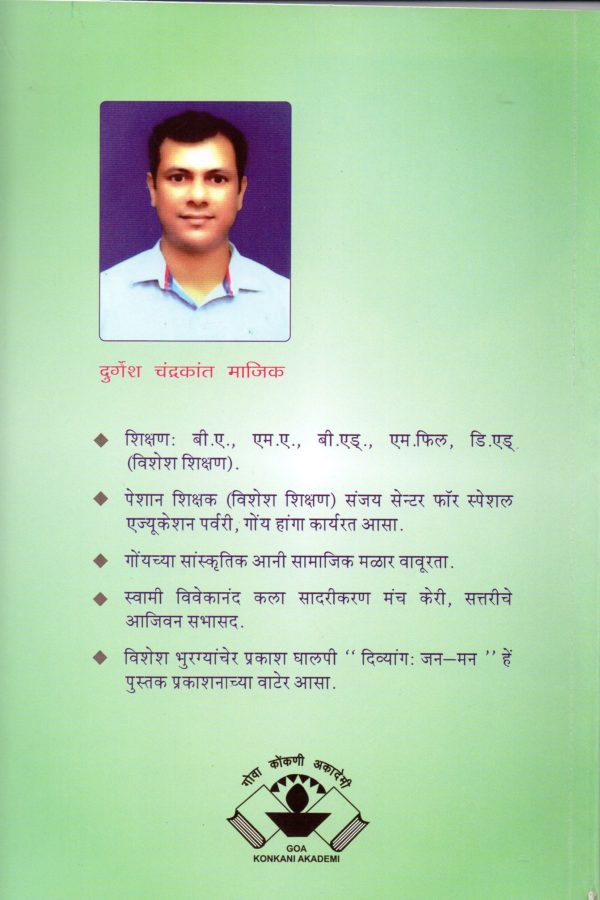 दुर्गेश चंद्रकांत माजिक
शिक्षण: बी.ए., एम.ए., बी.एड्., एम.फिल, डि.एड्
(विशेश शिक्षण).
पेशान शिक्षक (विशेश शिक्षण) संजय सेन्टर फॉर स्पेशल
एज्यूकेशन पर्वरी, गोंय हांगा कार्यरत आसा.
गोंयच्या सांस्कृतिक आनी सामाजिक मळार वावूरता.
स्वामी विवेकानंद कला सादरीकरण मंच केरी, सत्तरीचे
आजिवन सभासद.
विशेश भुरग्यांचेर प्रकाश घालपी “ दिव्यांग: जन–मन ” हें
पुस्तक प्रकाशनाच्या वाटेर आसा.
गोवा कोंकणी अकादेमी
GOA
KONKANI AKADEMI